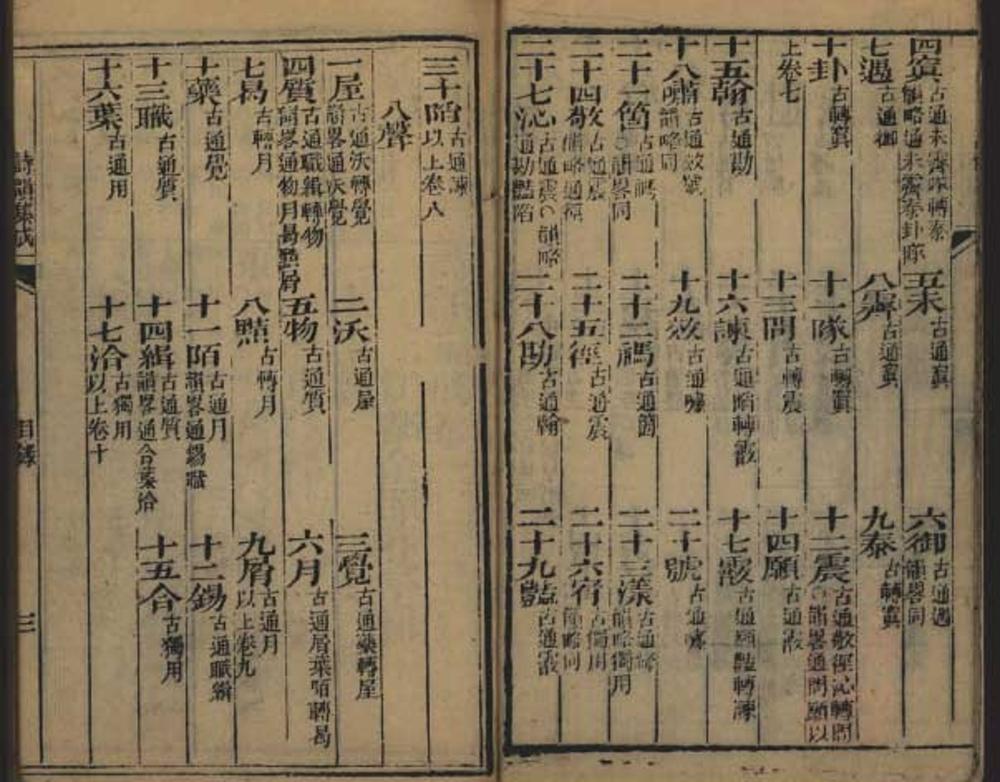 四寘 古通未霽隊轉泰 韻略通未霽泰卦隊 五未 古通寘 六御 古通遇 韻畧同
七遇 古通御 八霽 古通寘 九泰 古轉寘
十卦 古轉寘 十一隊 古轉寘 十二震 古通敬徑沁轉問○韻畧通問願以
上卷七 十三問 古轉震 十四願 古通霰
十五翰 古通勘 十六諫 古通陷轉霰 十七霰 古通願豔轉諫
十八嘯 古通效號 韻略同 十九效 古通嘯 二十號 古通嘯
二十一箇 古通禡○韻畧同 二十二禡 古通箇 二十三漾 古通 韻略獨用
二十四敬 古通震 韻略通徑 二十五徑 古通震 二十六宥 古獨用 韻略同
二十七沁 古通震○韻略通勘豔陷 二十八勘 古通翰 二十九豔 古通霰
三十陷 古通諫 以上卷八
入聲
一屋 古通沃轉覺 韻畧通沃覺 二沃 古通屋 三覺 古通藥轉屋
四質 古通職緝轉物 韻畧通物月曷黠屑 五物 古通質 六月 古通屑葉陌轉曷
七曷 古轉月 八黠 古轉月 九屑 古通月 以上卷九
十藥 古通覺 十一陌 古通月 韻畧通錫職 十二錫 古通職緝
十三職 古通質 十四緝 古通質 韻畧通合葉洽 十五合 古獨用
十六葉 古通用 十七洽 古獨用 以上卷十
詩韻集成 目錄 三